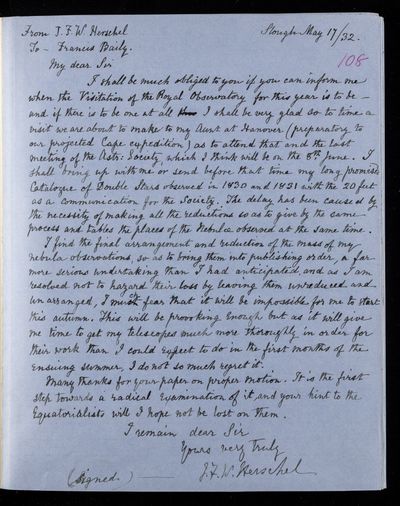 From J.F.W. Herschel Slough May 17/32.
To – Francis Baily. 108
My dear Sir
I shall be much obliged to you if you can inform me
when the Visitation of the Royal Observatory for this year is to be –
and if there is to be one at all I shall be very glad so to time a
visit we are about to make to my Aunt at Hanover (preparatory to
our projected Cape expedition) as to attend that and the last
meeting of the Astr: Society, which I think will be on the 8th June. I
shall bring up with me or send before that time my long promised
Catalogue of Double Stars observed in 1830 and 1831 with the 20 feet
as a communication for the Society. The delay has been caused by
the necessity of making all the reductions so as to give by the same
process and tables the places of the Nebulæ observed at the same time.
I find the final arrangement and reduction of the mass of my
nebula observations, so as to bring them into publishing order, a far
more serious undertaking than I had anticipated and as I am
resolved not to hazard their loss by leaving them unreduced and
unarranged, I much fear that it will be impossible for me to start
this autumn. This will be provoking enough but as it will give
me time to get my telescopes much more thoroughly in order for
their work than I could expect to do in the first months of the
ensuing summer, I do not so much regret it.
Many thanks for your paper on proper motion. It is the first
step towards a radical examination of it and your hint to the
Equatorialists will I hope not be lost on them.
I remain dear Sir
Yours very truly
(Signed.) – J.F.W. Herschel